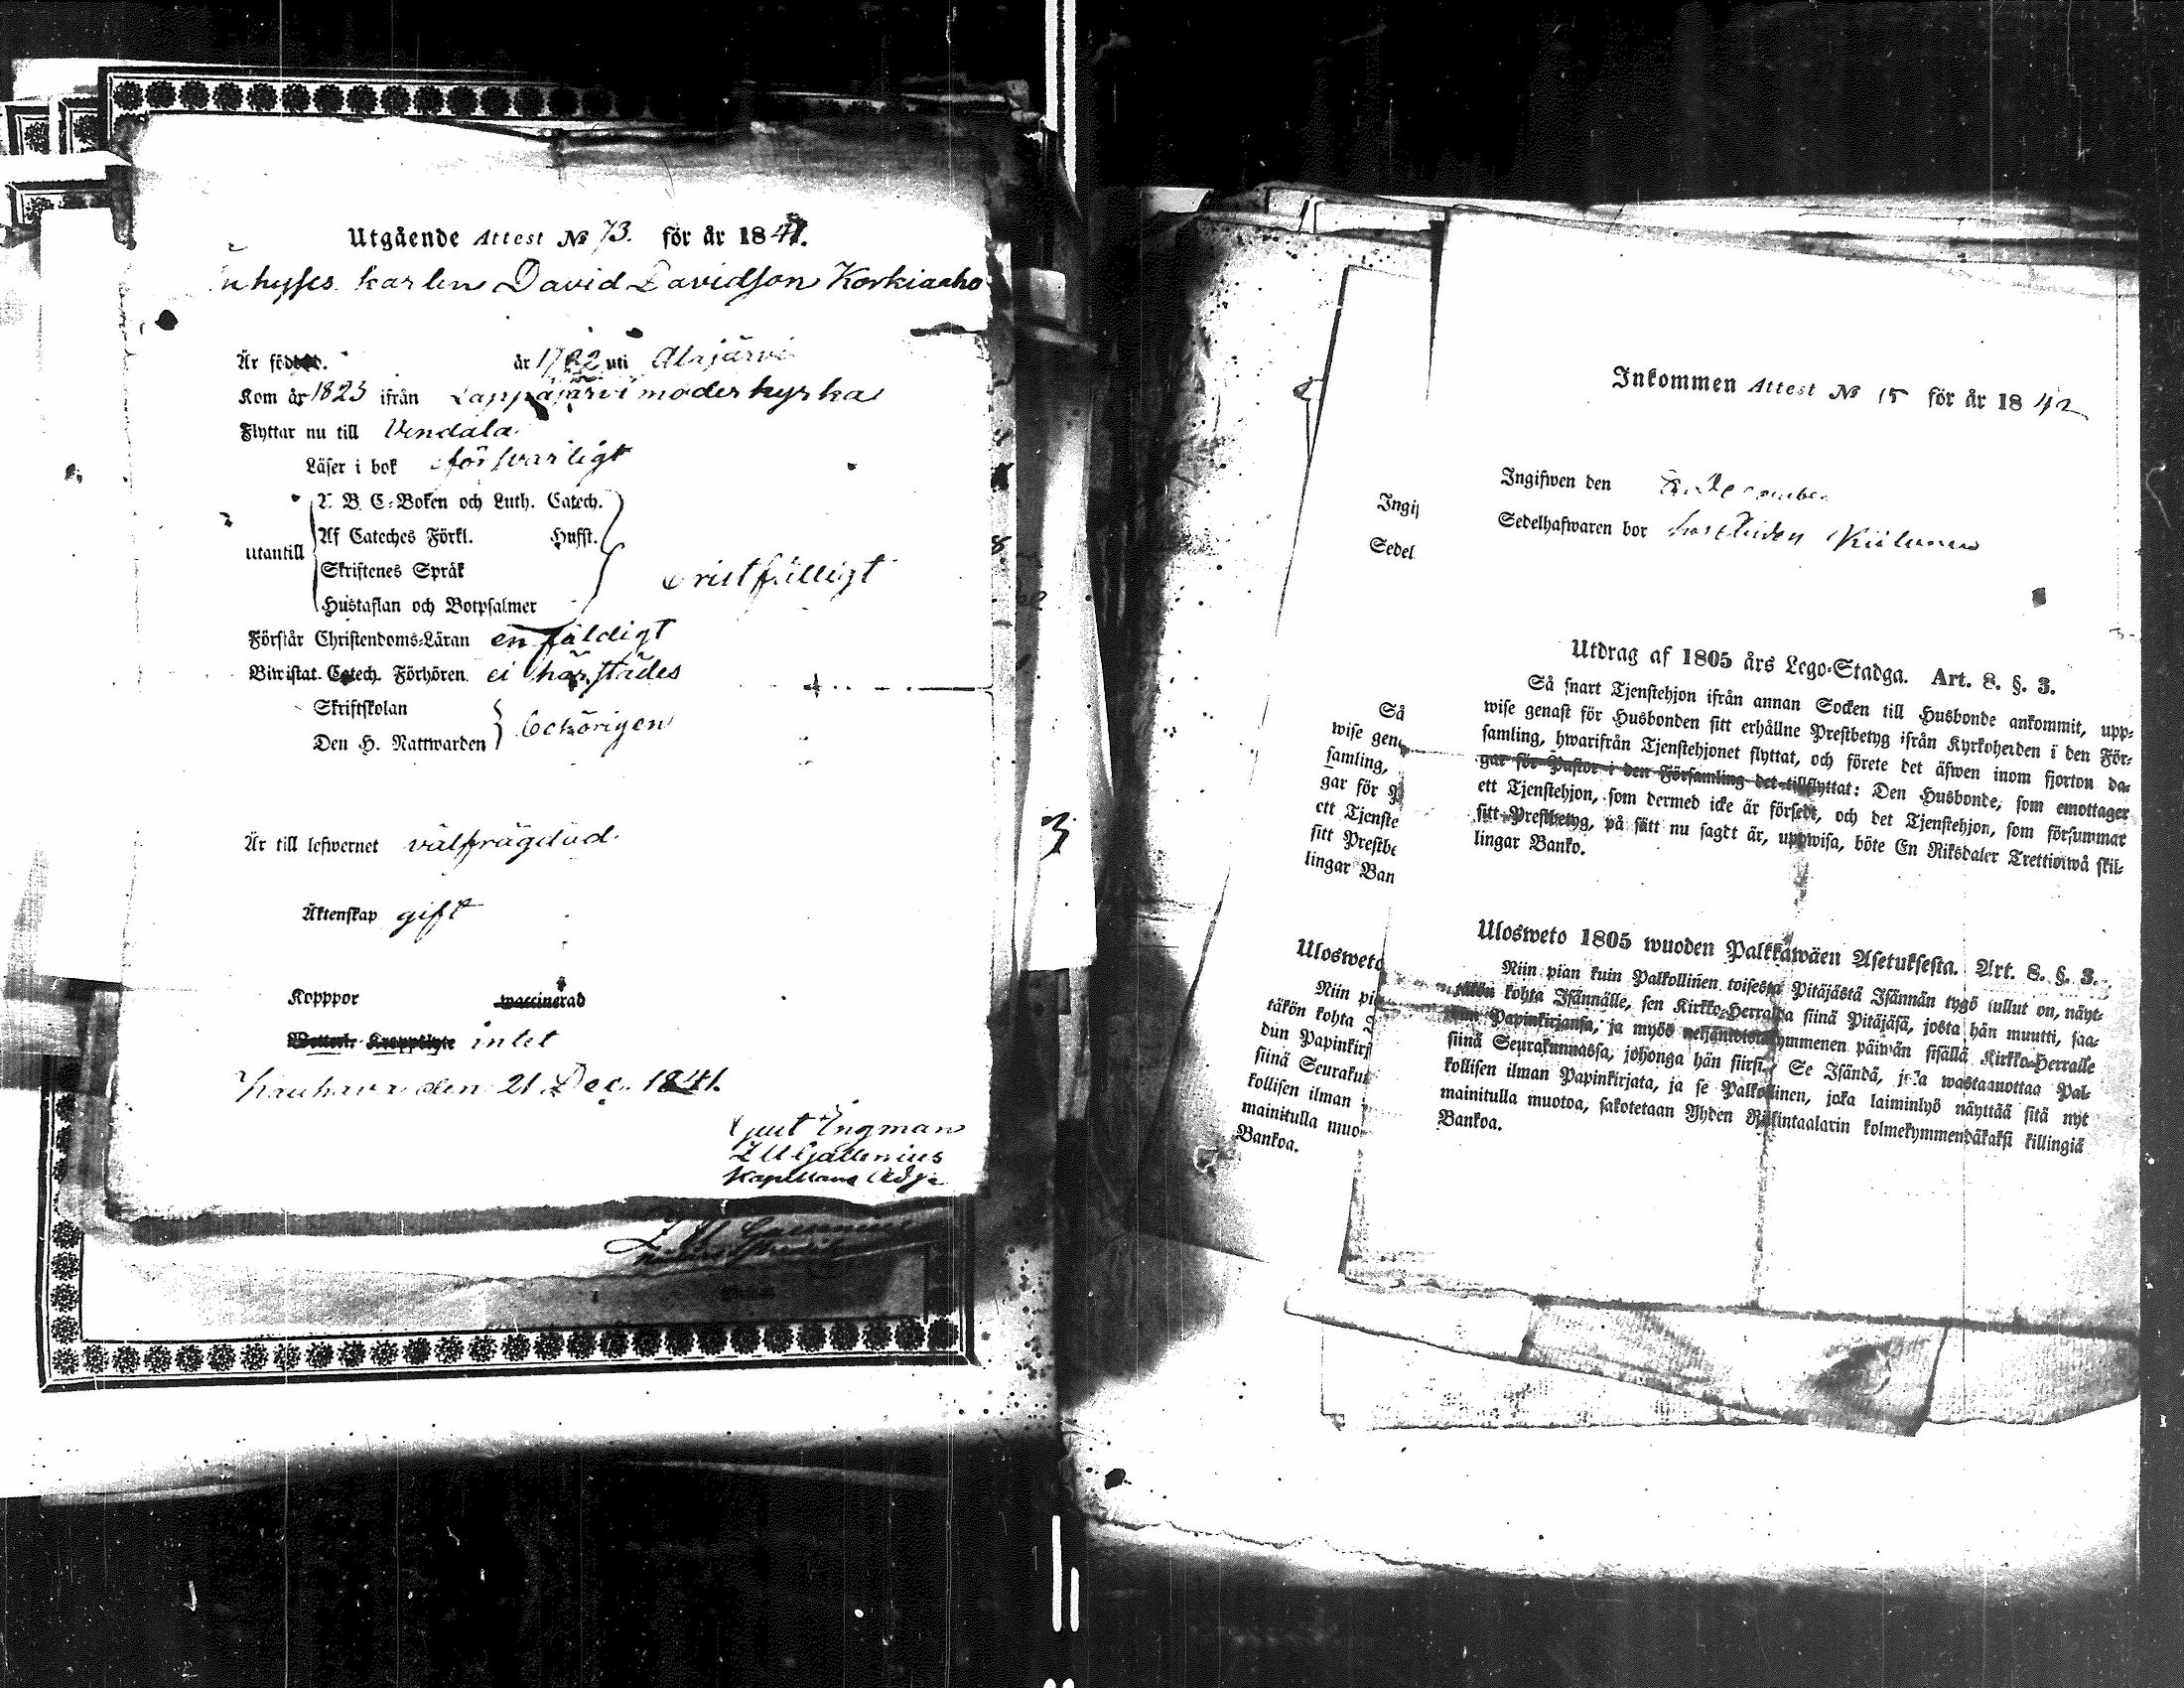 Utgående Attest № 73. för år 1841.
Inhyses karlen David Davidson Korkiaaho
Är född. år uti Alajärvi
Kom år 1823 ifrån Lappajärvi moderkyrka
Flyttar nu till Vindala
Läser i bok försvarligt
utantill
A. B. C-Boken och Luth. Catech.
Af Cateches Förkl. Husst.
Skriftenes Språk
Hustaflan och Botpsalmer
bristfälligt
Förstår Christendoms-Läran enfäldigt
Biwistat Catech. Förhören ei härstädes
Skriftskolan
Den H. Nattwarden
behörigen
Är till lefwernet välfrägdad
Äktenskap gift
Kopppor vaccinerad
intet
Kauhava den 21 Dec. 1841.
Ingman
Kapellans Adj.
3
Inkommen Attest № 15 för år 1842
Ingifwen den
Sedelhafwaren bor
Utdrag af 1805 års Lego-Stadga. Art. 8. §. 3.
Så snart Tjenstehjon ifrån annan Socken till Husbonde ankommit, upp-
wise genast för Husbonden sitt erhållne Prestbetyg ifrån Kyrkoherden i den För-
samling, hwarifrån Tjenstehjonet flyttat, och förete det äfwen inom fjorton da-
gar för Pastor i den Församling det tillflyttat: Den Husbonde, som emottager
ett Tjenstehjon, som dermed icke är försedt, och det Tjenstehjon, som försummar
sitt Prestbetyg, på sätt nu sagdt är, uppwisa, böte En Riksdaler Trettiotwå skil-
lingar Banko.
Ulosweto 1805 wuoden Palkkawäen Asetuksesta. Art. 8. §. 3.
Niin pian kuin Palkollinen toisesta Pitäjästä Isännän tygö tullut on, näyt-
täkön kohta Isännälle, sen Kirkko-Herralda siinä Pitäjäsä, josta hän muutti, saa-
dun Papinkirjansa, ja myös neljäntoistakymmenen päiwän sisällä Kirkko-Herralle
siinä Seurakunnassa, johonga hän siirsi. Se Isändä, joka wastaanottaa Pal-
kollisen ilman Papinkirjata, ja se Palkollinen, joka laiminlyö näyttää sitä nyt
mainitulla muotoa, sakotetaan Yhden Riksintaalarin kolmekymmendäkaksi killingiä
Bankoa.
Ingif
Sedel
Så
wise gen
samling,
gar för P
ett Tjenste
sitt Prestbe
lingar Ban
Ulosweto
Niin pi
täkön kohta
dun Papinkirj
siinä Seurakun
kollisen ilman
mainitulla muo
Bankoa.